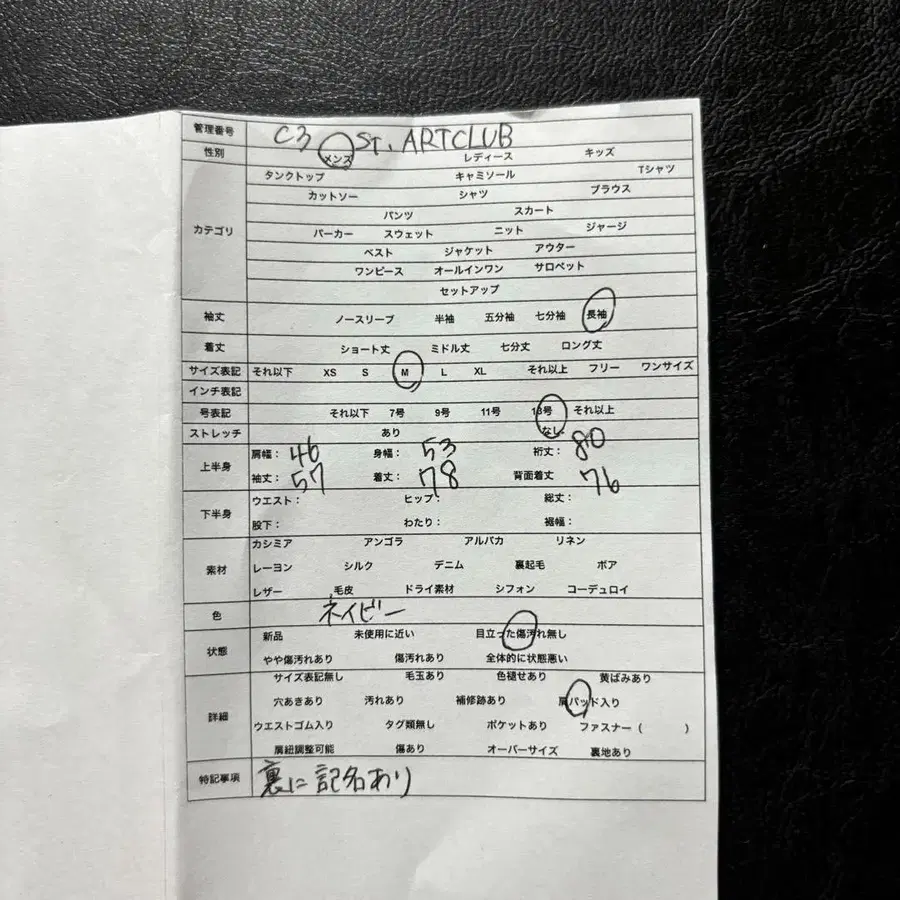 管理番号 C3 ST.ARTCLUB
性別 メンズ レディース キッズ
タンクトップ キャミソール Tシャツ
カットソー シャツ ブラウス
パンツ スカート
カテゴリ パーカー スウェット ニット ジャージ
ベスト ジャケット アウター
ワンピース オールインワン サロペット
セットアップ
袖丈 ノースリーブ 半袖 五分袖 七分袖 長袖
着丈 ショート丈 ミドル丈 七分丈 ロング丈
サイズ表記 それ以下 XS S M L XL それ以上 フリー ワンサイズ
インチ表記
号表記 それ以下 7号 9号 11号 13号 それ以上
ストレッチ あり なし
上半身 肩幅: 46 身幅: 53 裄丈: 80
袖丈: 57 着丈: 78 背面着丈 76
下半身 ウエスト: ヒップ: 総丈:
股下: わたり: 裾幅:
カシミア アンゴラ アルパカ リネン
素材 レーヨン シルク デニム 裏起毛 ボア
レザー 毛皮 ドライ素材 シフォン コーデュロイ
色 ネイビー
状態 新品 未使用に近い 目立った傷汚れ無し
やや傷汚れあり 傷汚れあり 全体的に状態悪い
サイズ表記無し 毛玉あり 色褪せあり 黄ばみあり
穴あきあり 汚れあり 補修跡あり 肩パッド入り
詳細 ウエストゴム入り タグ類無し ポケットあり ファスナー( )
肩紐調整可能 傷あり オーバーサイズ 裏地あり
特記事項 裏に記名あり